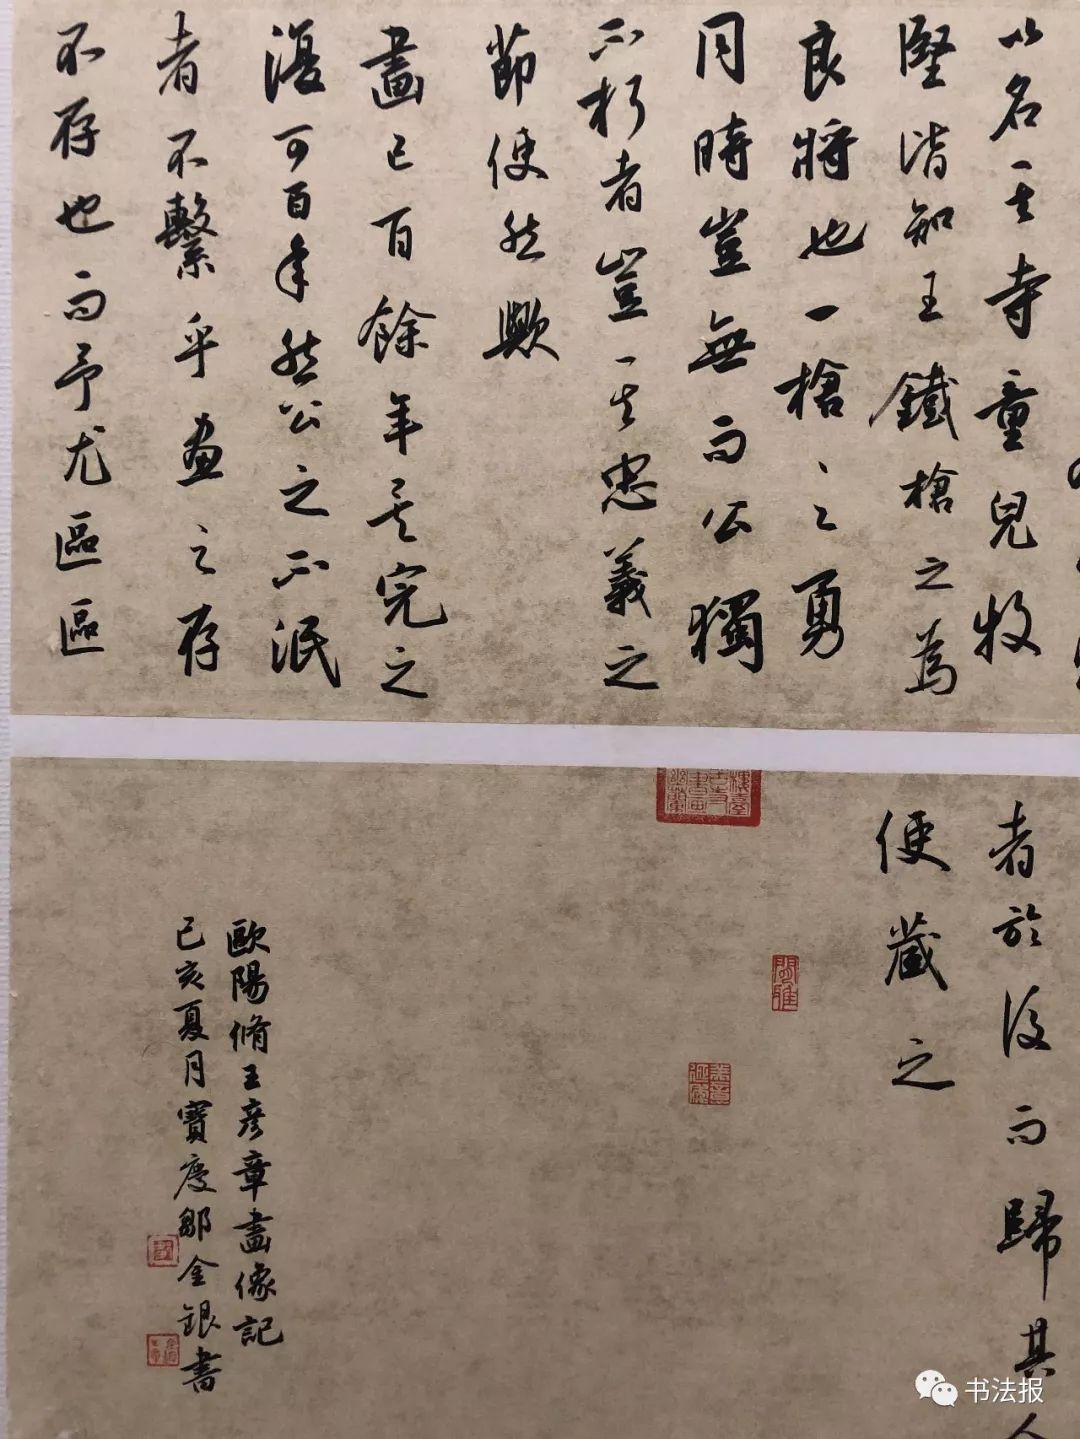 以名其寺童兒牧
堅皆知王鐵槍之爲
良將也一槍之勇
同時豈無而公獨
不朽者豈其忠義之
節使然歟
畫已百餘年矣完之
復可百年然公之不泯
者不繫乎畫之存
不存也而予尤區區
者於後而歸其人
使藏之
歐陽脩王彦章畫像記
己亥夏月寶慶鄒金銀書
书法报